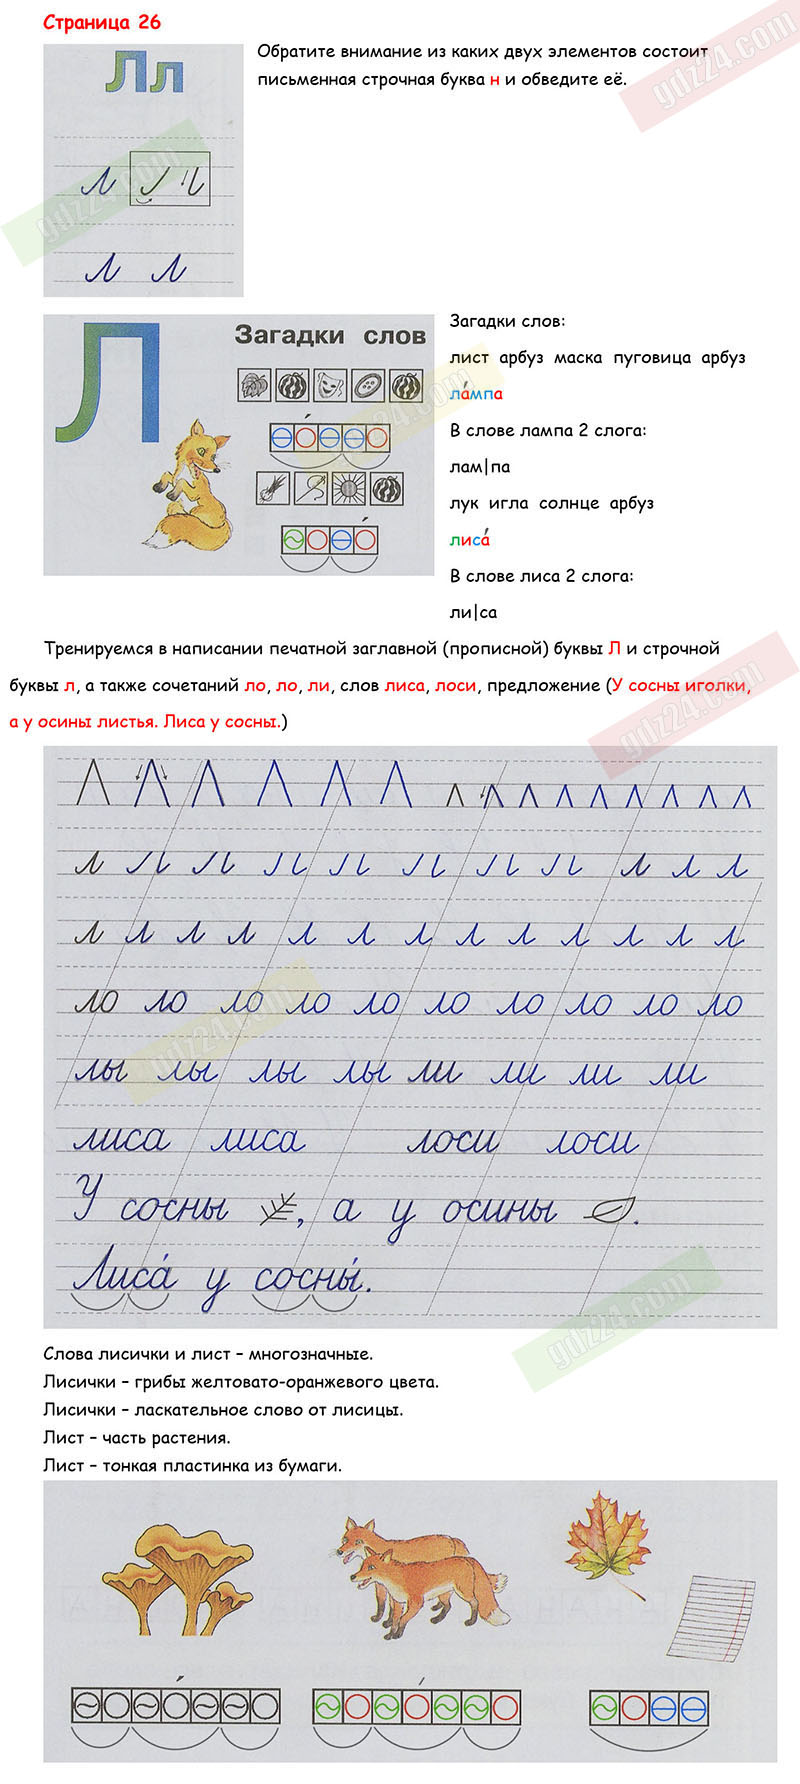 Страница 26
Обратите внимание из каких двух элементов состоит
письменная строчная буква н и обведите её.
Лл
л
л л
Л
Загадки слов
Загадки слов:
лист арбуз маска пуговица арбуз
ла́мпа
В слове лампа 2 слога:
лам|па
лук игла солнце арбуз
лиса́
В слове лиса 2 слога:
ли|са
Тренируемся в написании печатной заглавной (прописной) буквы Л и строчной
буквы л, а также сочетаний ло, ло, ли, слов лиса, лоси, предложение (У сосны иголки,
а у осины листья. Лиса у сосны.)
Л Л Л Л Л Л л л л л л л л л л
л л л л
л л л л л л л л л л л л л
ло ло ло ло ло ло ло ло ло ло
лы лы лы лы ли ли ли ли
лиса лиса лоси лоси
У сосны , а у осины .
Лиса́ у сосны́.
Слова лисички и лист – многозначные.
Лисички – грибы желтовато-оранжевого цвета.
Лисички – ласкательное слово от лисицы.
Лист – часть растения.
Лист – тонкая пластинка из бумаги.
gdz24.com
gdz24.com
gdz24.com
gdz24.com
gdz24.com
gdz24.com